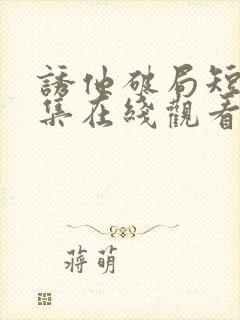 誘他破局短
集在綫觀看
蔣萌